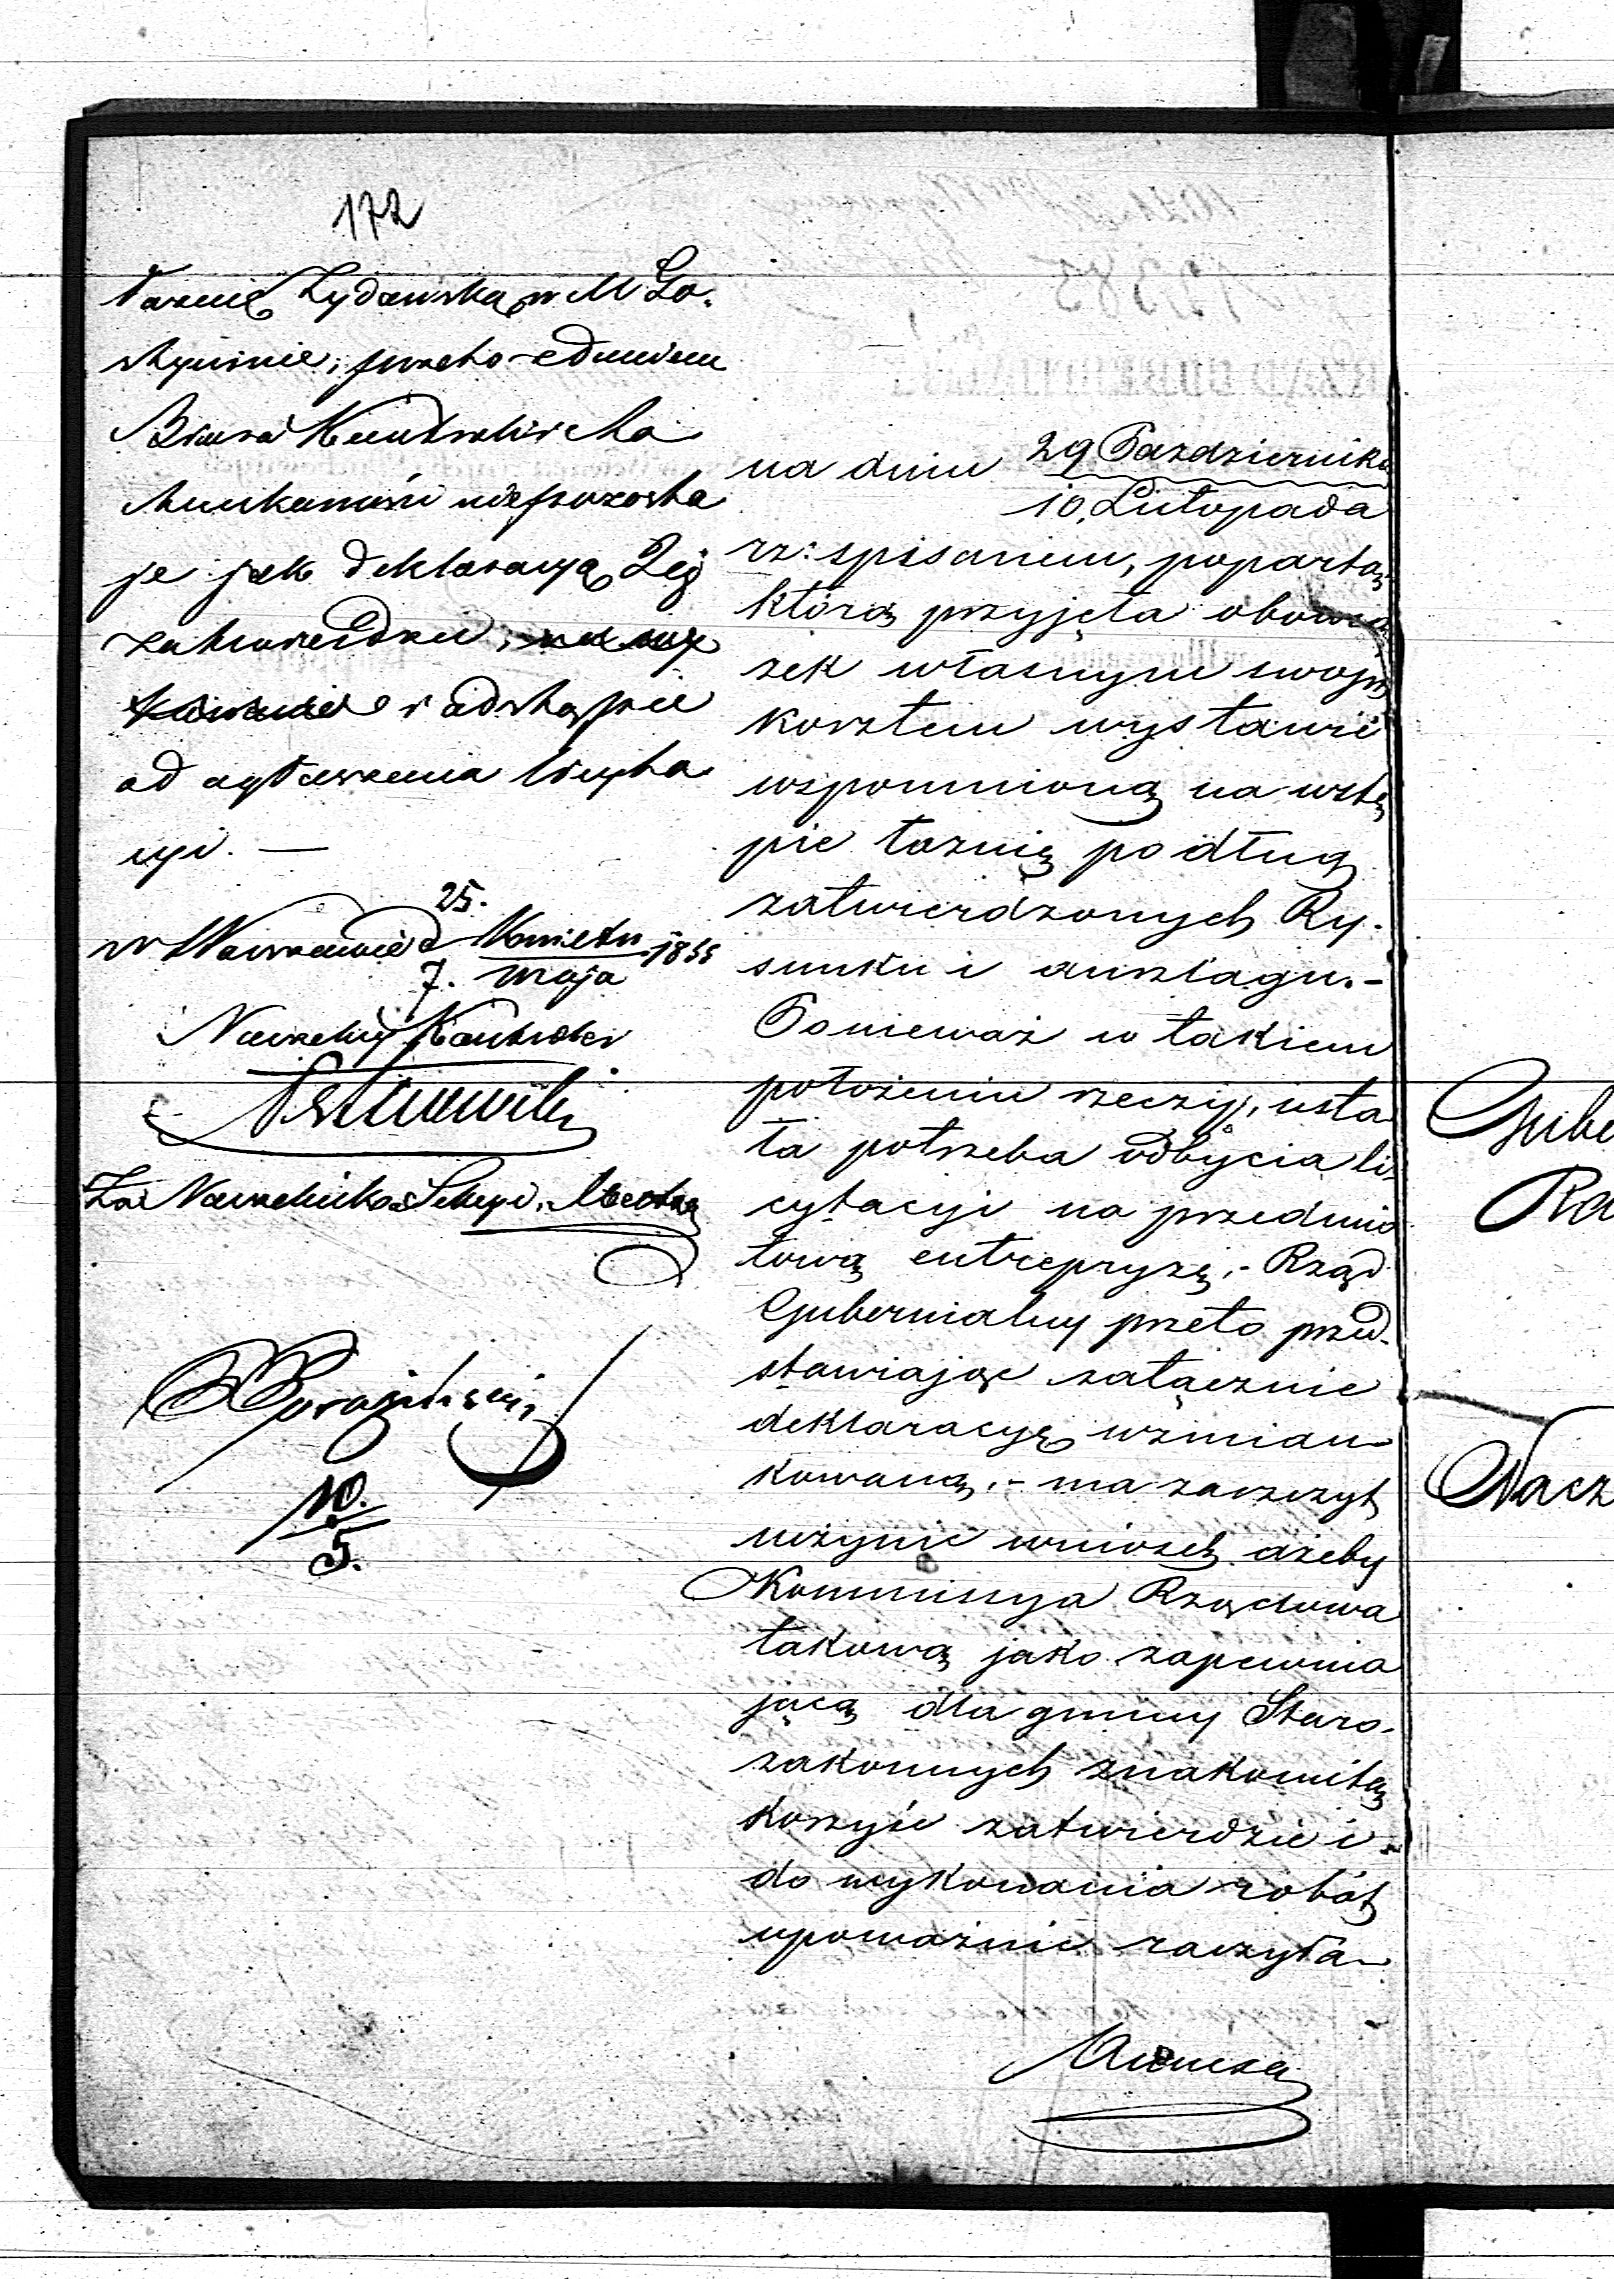 172
Łaznię Żydowską w M Go-
styninie; przeto zdaniem
Biura Kontroli nic tu
niepozosta
je jak deklaracyą tę
zatwierdzić,
i odstąpić
od ogłoszenia licyta
cyi. —
w Warszawie d 25. Kwietnia 1855
7. Maja
Naczelny Kontroler
Za Naczelnika Sekcyi
10.
5.
na dniu 29 Października
10. Listopada
rz: spisaniem, popartą,
którą przyjęła obowią
zek własnym swoim
kosztem wystawić
wspomnioną na wstę
pie łaznię podług
zatwierdzonych Ry-
sunku i anszlagu.-
Ponieważ w takiem
położeniu rzeczy, usta
ła potrzeba odbycia li-
cytacyi na przedmio
tową entrepryzę,- Rząd
Gubernialny przeto przed-
stawiając załącznie
deklaracyę wzmian
kowaną,- ma zaszczyt
uczynić wniosek ażeby
Kommissya Rządowa
takową jako zapewnia
jącą dla gminy Staro-
zakonnych znakomitą
korzyść zatwierdzić i
do wykonania robót
upoważnić raczyła
Gube
Ra
Nacz